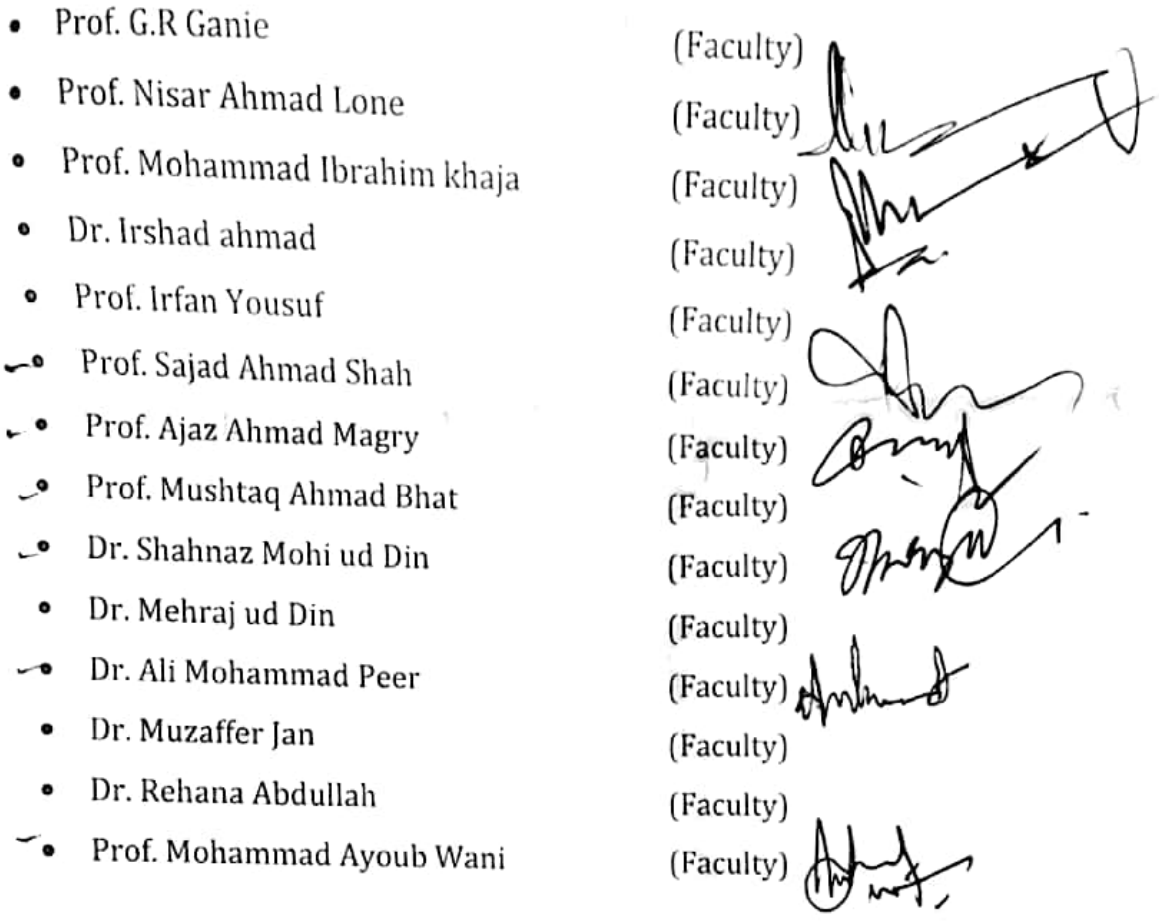 • Prof. G.R Ganie (Faculty)
• Prof. Nisar Ahmad Lone (Faculty)
• Prof. Mohammad Ibrahim khaja (Faculty)
• Dr. Irshad ahmad (Faculty)
• Prof. Irfan Yousuf (Faculty)
• Prof. Sajad Ahmad Shah (Faculty)
• Prof. Ajaz Ahmad Magry (Faculty)
• Prof. Mushtaq Ahmad Bhat (Faculty)
• Dr. Shahnaz Mohi ud Din (Faculty)
• Dr. Mehraj ud Din (Faculty)
• Dr. Ali Mohammad Peer (Faculty)
• Dr. Muzaffer Jan (Faculty)
• Dr. Rehana Abdullah (Faculty)
• Prof. Mohammad Ayoub Wani (Faculty)